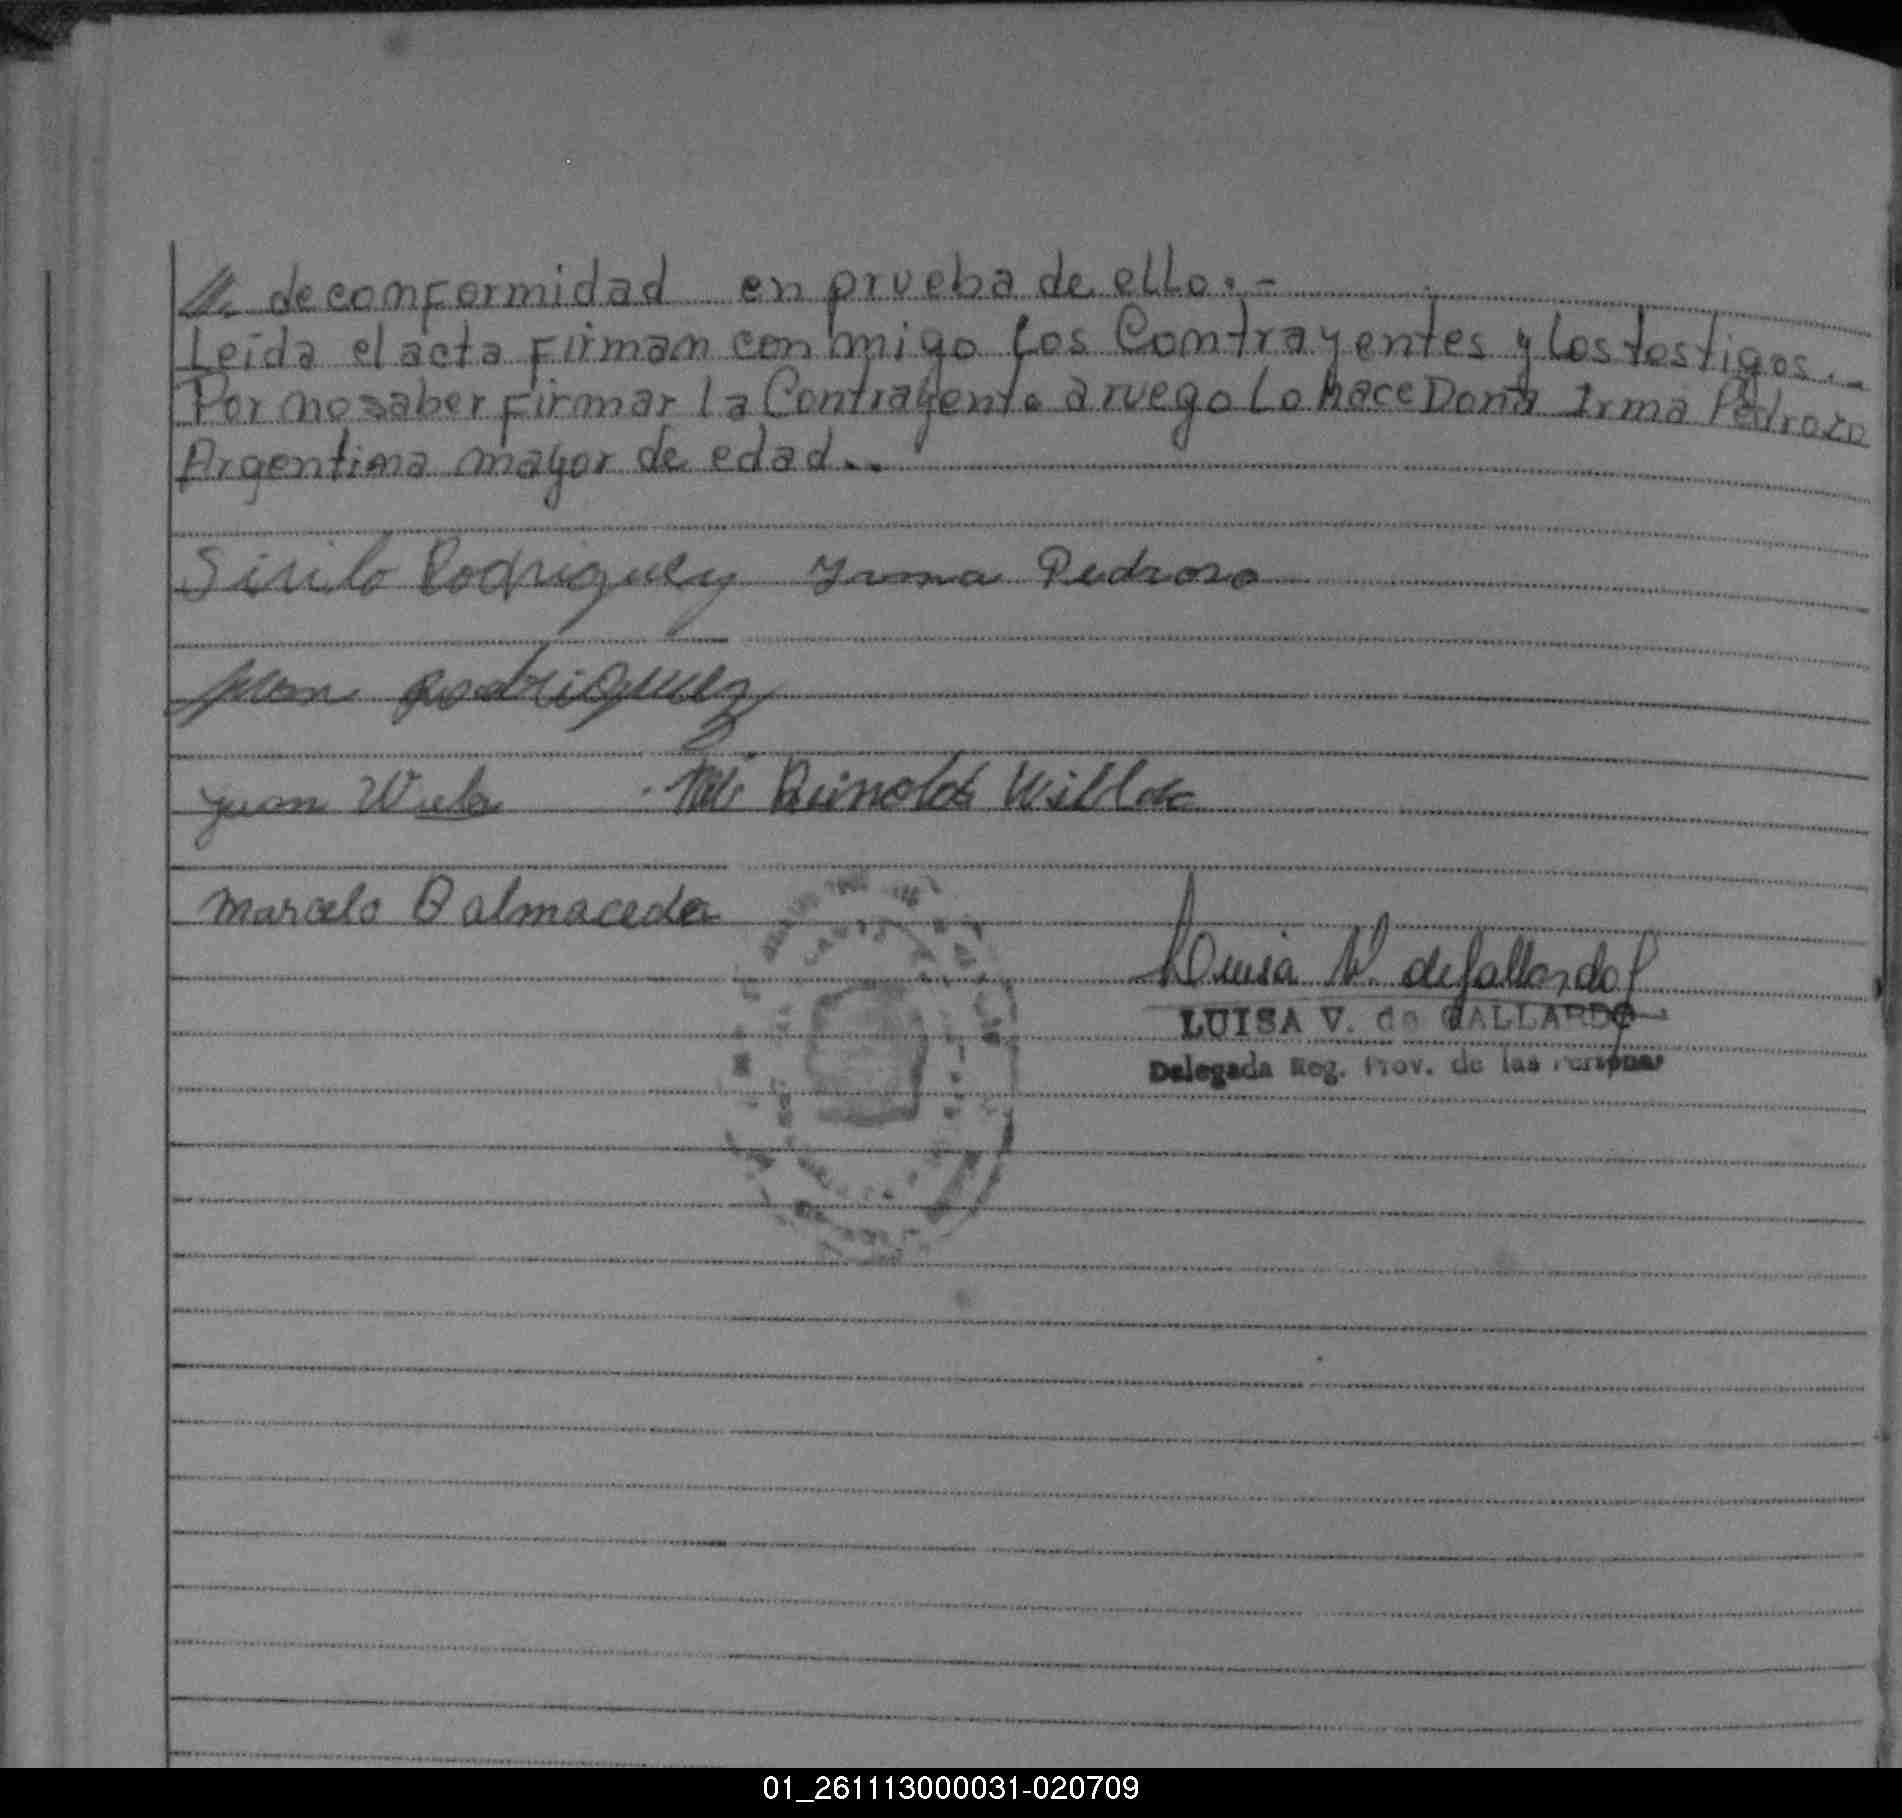 de conformidad en prueba de ello.-
Leida el acta Firman conmigo los Contrayentes y los testigos..-
Por no saber Firmar la Contrayente a ruego lo hace Doña Irma Pedrozo
Argentina mayor de edad..
Sirilo Rodriguez Yrma Pedrozo
Juan Rodriguez
Juan Reinoldo
Marcelo Balmaceda
Luisa V. de Gallardo
LUISA V. de GALLARDO
Delegada Reg. Prov. de las Personas
01_261113000031-020709